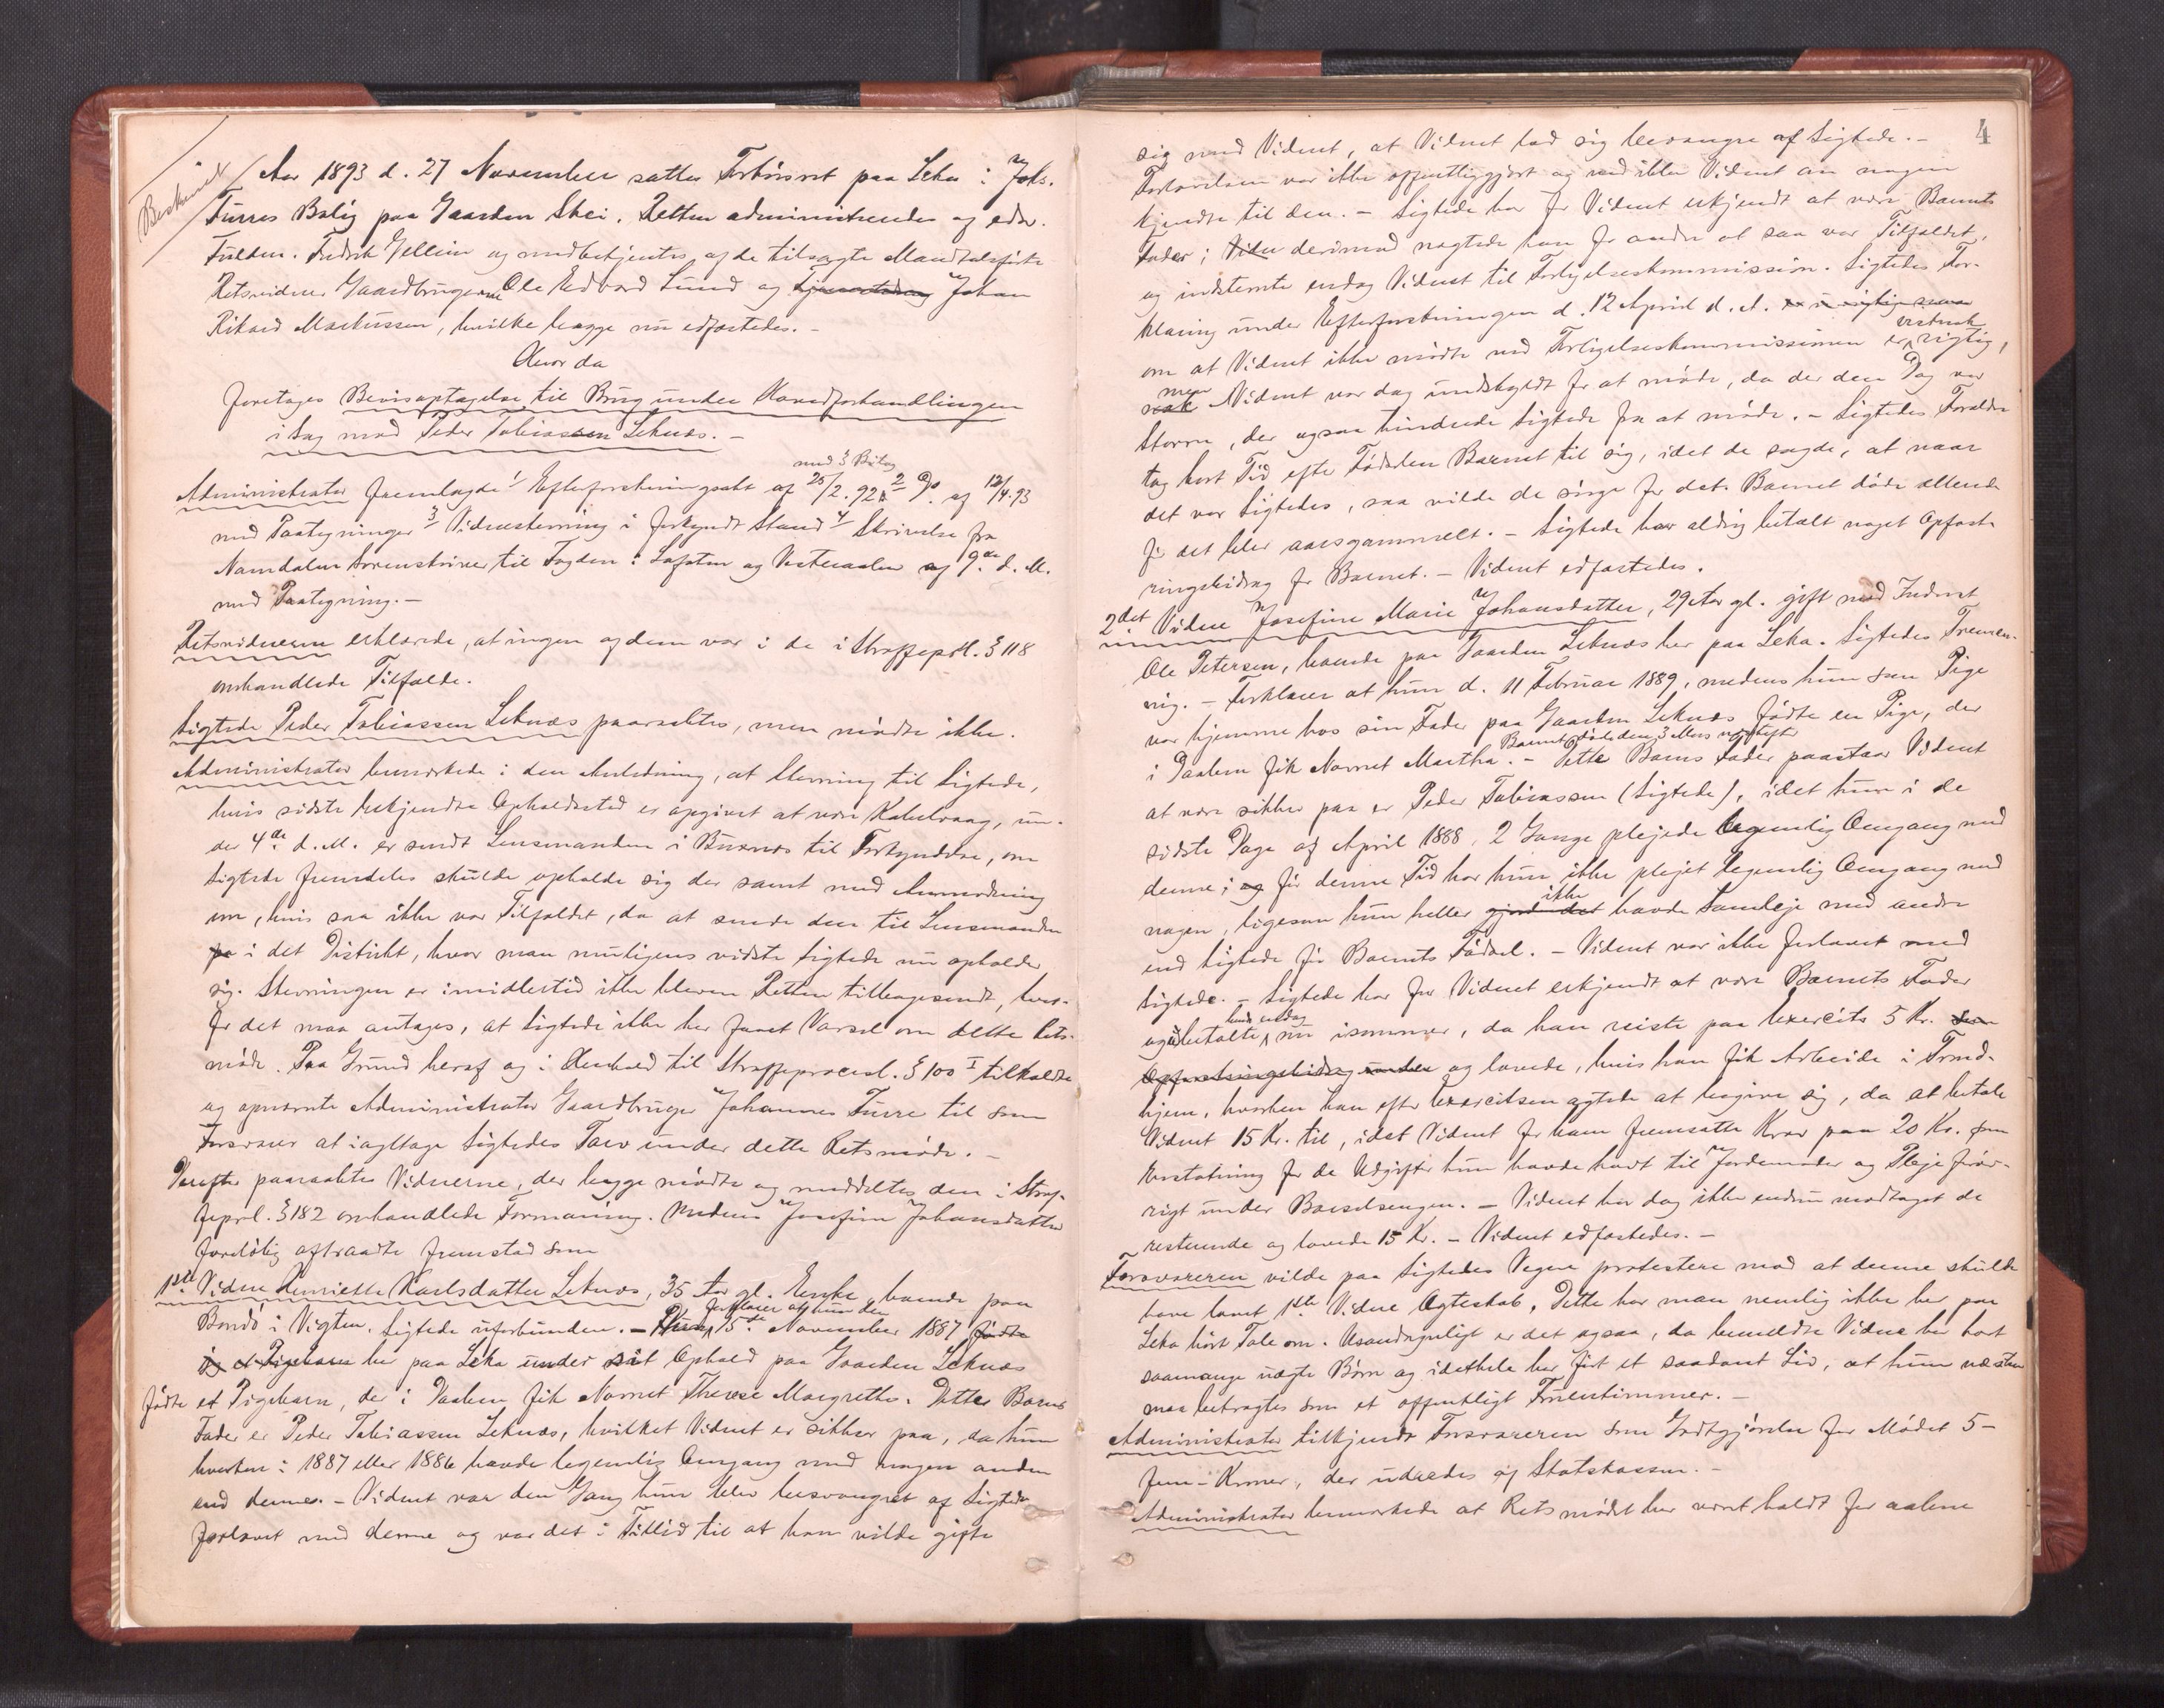 Beskrivet
Aar 1893 d. 27 November sattes Forhörsret paa Leka i Johs.
Furres Bolig paa Gaarden Skei. Retten administreredes af edsv.
Fuldm. Fredrik Gellein og medbetjentes af de tilsagte Mandtalsförte
Retsvidner Gaardbrugerne Ole Edvard Lund og Johan
Rikard Markussen, hvilke begge nu edfæstedes. –
Hvor da
foretages Bevisoptagelse til Brug under Hovedforhandlingen
i Sag mod Peder Tobiassen Leknæs. –
med 3 Bilag
Administrator fremlagde 1/ Efterforskningsakt af 25/2. 92 2/ Do. af 12/4.93
med Paategninger 3/ Vidnestevning i forkyndt Stand 4/ Skrivelse fra
Namdalens Sorenskriver til Fogden i Lofoten og Vesteraalen af 9de d. M.
med Paategning. –
Retsvidnerne erklærede, at ingen af dem var i de i Straffeprl. § 118
omhandlede Tilfælde.
Sigtede Peder Tobiassen Leknæs paaraabtes, men mödte ikke.
Administrator bemærkede i den Anledning, at Stevning til Sigtede,
hvis sidste bekjendte Opholdssted er opgivet at være Kabelvaag, un-
der 4de d. M. er sendt Lensmanden i Buxnæs til Forkyndelse, om
Sigtede fremdeles skulde opholde sig der samt med Anmodning
om, hvis saa ikke var Tilfældet, da at sende den til Lensmanden
i det Distrikt, hvor man muligens vidste Sigtede nu opholder
sig. Stevningen er imidlertid ikke bleven Retten tilbagesendt, hvor-
for det maa antages, at Sigtede ikke har faaet Varsel om dette Rets-
möde. Paa Grund heraf og i Henhold til Straffeprocesl. § 100 I tilkaldte
og opnævnte Administrator Gaardbruger Johannes Furre til som
Forsvarer at iagttage Sigtedes Tarv under dette Retsmöde. –
Derefter paaraabtes Vidnerne, der begge mödte og meddeltes den i Straf-
feprl. § 182 omhandlede Formaning. Medens Josefine Johansdatter
forelöbig aftraadte fremstod som
1ste Vidne Henriette Karlsdatter Leknæs, 35 Aar gl. Enke, boende paa
Forklarer at hun den
Bondö i Vigten. Sigtede uforbunden. – 15de November 1887 födte
et Pigebarn her paa Leka under sit Ophold paa Gaarden Leknæs
födte et Pigebarn, der i Daaben fik Navnet Therese Margrethe. Dette Barns
Fader er Peder Tobiassen Leknæs, hvilket Vidnet er sikker paa, da hun
hverken i 1887 eller 1886 havde legemlig Omgang med nogen anden
end denne. – Vidnet var den Gang hun blev besvangret af Sigtede
forlovet med denne og var det i Tillid til at han vilde gifte
4
sig med Vidnet, at Vidnet lod sig besvangre af Sigtede. –
Forlovelsen var ikke offentliggjort og ved ikke Vidnet om nogen
kjendte til den. – Sigtede har for Vidnet erkjendt at være Barnets
Fader; derimod nægtede han for andre at saa var Tilfældet,
og indstevnte endog Vidnet til Forligelseskommission. Sigtedes For-
klaring under Efterforskningen d. 12 April d. A.
vistnok
om at Vidnet ikke mödte ved Forligelseskommissionen er rigtig,
men
Vidnet var dog undskyldt for at möde, da der den Dag var
Storm, der ogsaa hindrede Sigtede fra at möde. – Sigtedes Forældre
tog kort Tid efter Födselen Barnet til sig, idet de sagde, at naar
det var Sigtedes, saa vilde de sörge for det. Barnet döde allerede
för det blev aarsgammelt. – Sigtede har aldrig betalt noget Opfost-
ringsbidrag for Barnet. – Vidnet edfæstedes.
2det Vidne Josefine Marie Johansdatter, 29 Aar gl. gift med Inderst
Ole Petersen, boende paa Gaarden Leknæs her paa Leka. Sigtedes Tremen-
ning. – Forklarer at hun d. 11 Februar 1889, medens hun som Pige
var hjemme hos sin Fader paa Gaarden Leknæs födte en Pige, der
Barnet döde 3
i Daaben fik Navnet Martha. – Dette Barns Fader paastaar Vidnet
at være sikker paa er Peder Tobiassen (Sigtede), idet hun i de
sidste Dage af April 1888, 2 Gange plejede legemlig Omgang med
denne; og för denne Tid har hun ikke plejet legemlig Omgang med
ikke
nogen, ligesom hun heller gjord det havde Samleje med andre
end Sigtede för Barnets Födsel. – Vidnet var ikke forlovet med
Sigtede. – Sigtede har for Vidnet erkjendt at være Barnets Fader
hende endog
og betalte nu isommer, da han reiste paa Exercits 5 Kr. som
Opfostringsbidrag og lovede, hvis han fik Arbeide i Trond-
hjem, hvorhen han efter Exercitsen agtede at begive sig, da at betale
Vidnet 15 Kr. til, idet Vidnet for ham fremsatte Krav paa 20 Kr. som
Erstatning for de Udgifter hun havde havt til Jordemoder og Pleje forör-
rigt under Barselsengen. – Vidnet har dog ikke endnu modtaget de
resterende og lovede 15 Kr. – Vidnet edfæstedes. –
Forsvareren vilde paa Sigtedes Vegne protestere mod at denne skulde
have lovet 1ste Vidne Ægteskab. Dette har man nemlig ikke her paa
Leka hört Tale om. Usandsynligt er det ogsaa, da bemeldte Vidne har havt
saamange uægte Börn og idethele har fört et saadant Liv, at hun næsten
maa betragtes som et offentligt Fruentimmer. –
Administrator tilkjendte Forsvareren som Godtgjörelse for Mödet 5 –
fem – Kroner, der udredes af Statskassen. –
Administrator bemærkede at Retsmödet har været holdt for aabne